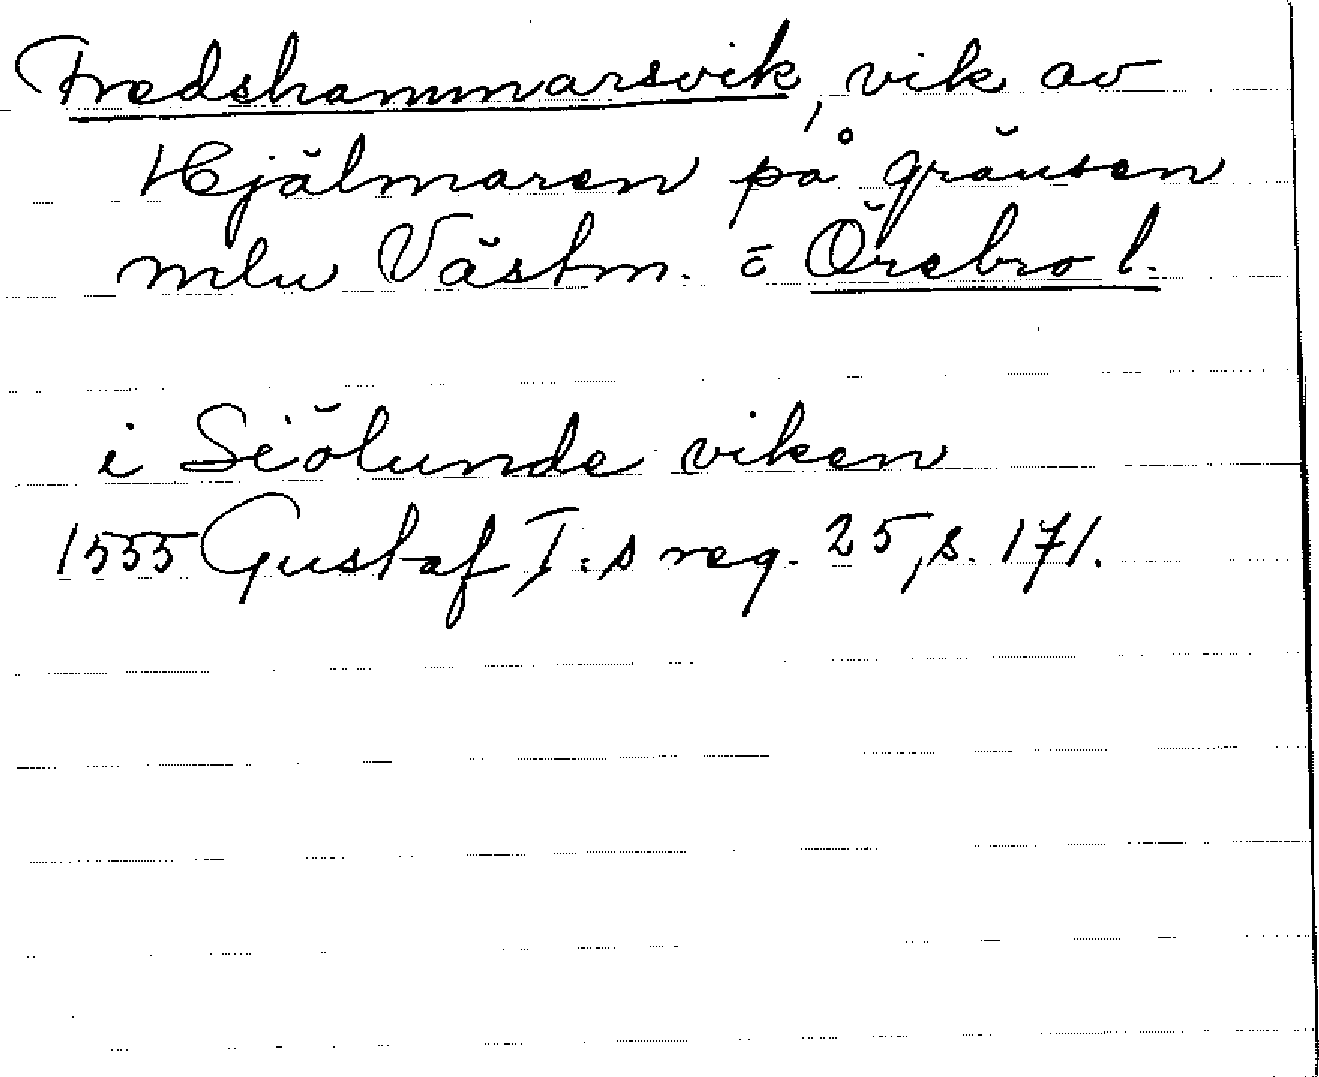 Fredshammarsvik, vik av
Hjälmaren på gränsen
mlu Västm. o Örebro l.
i Siölunde viken
1555 Gustaf I:s reg. 25, s. 171.